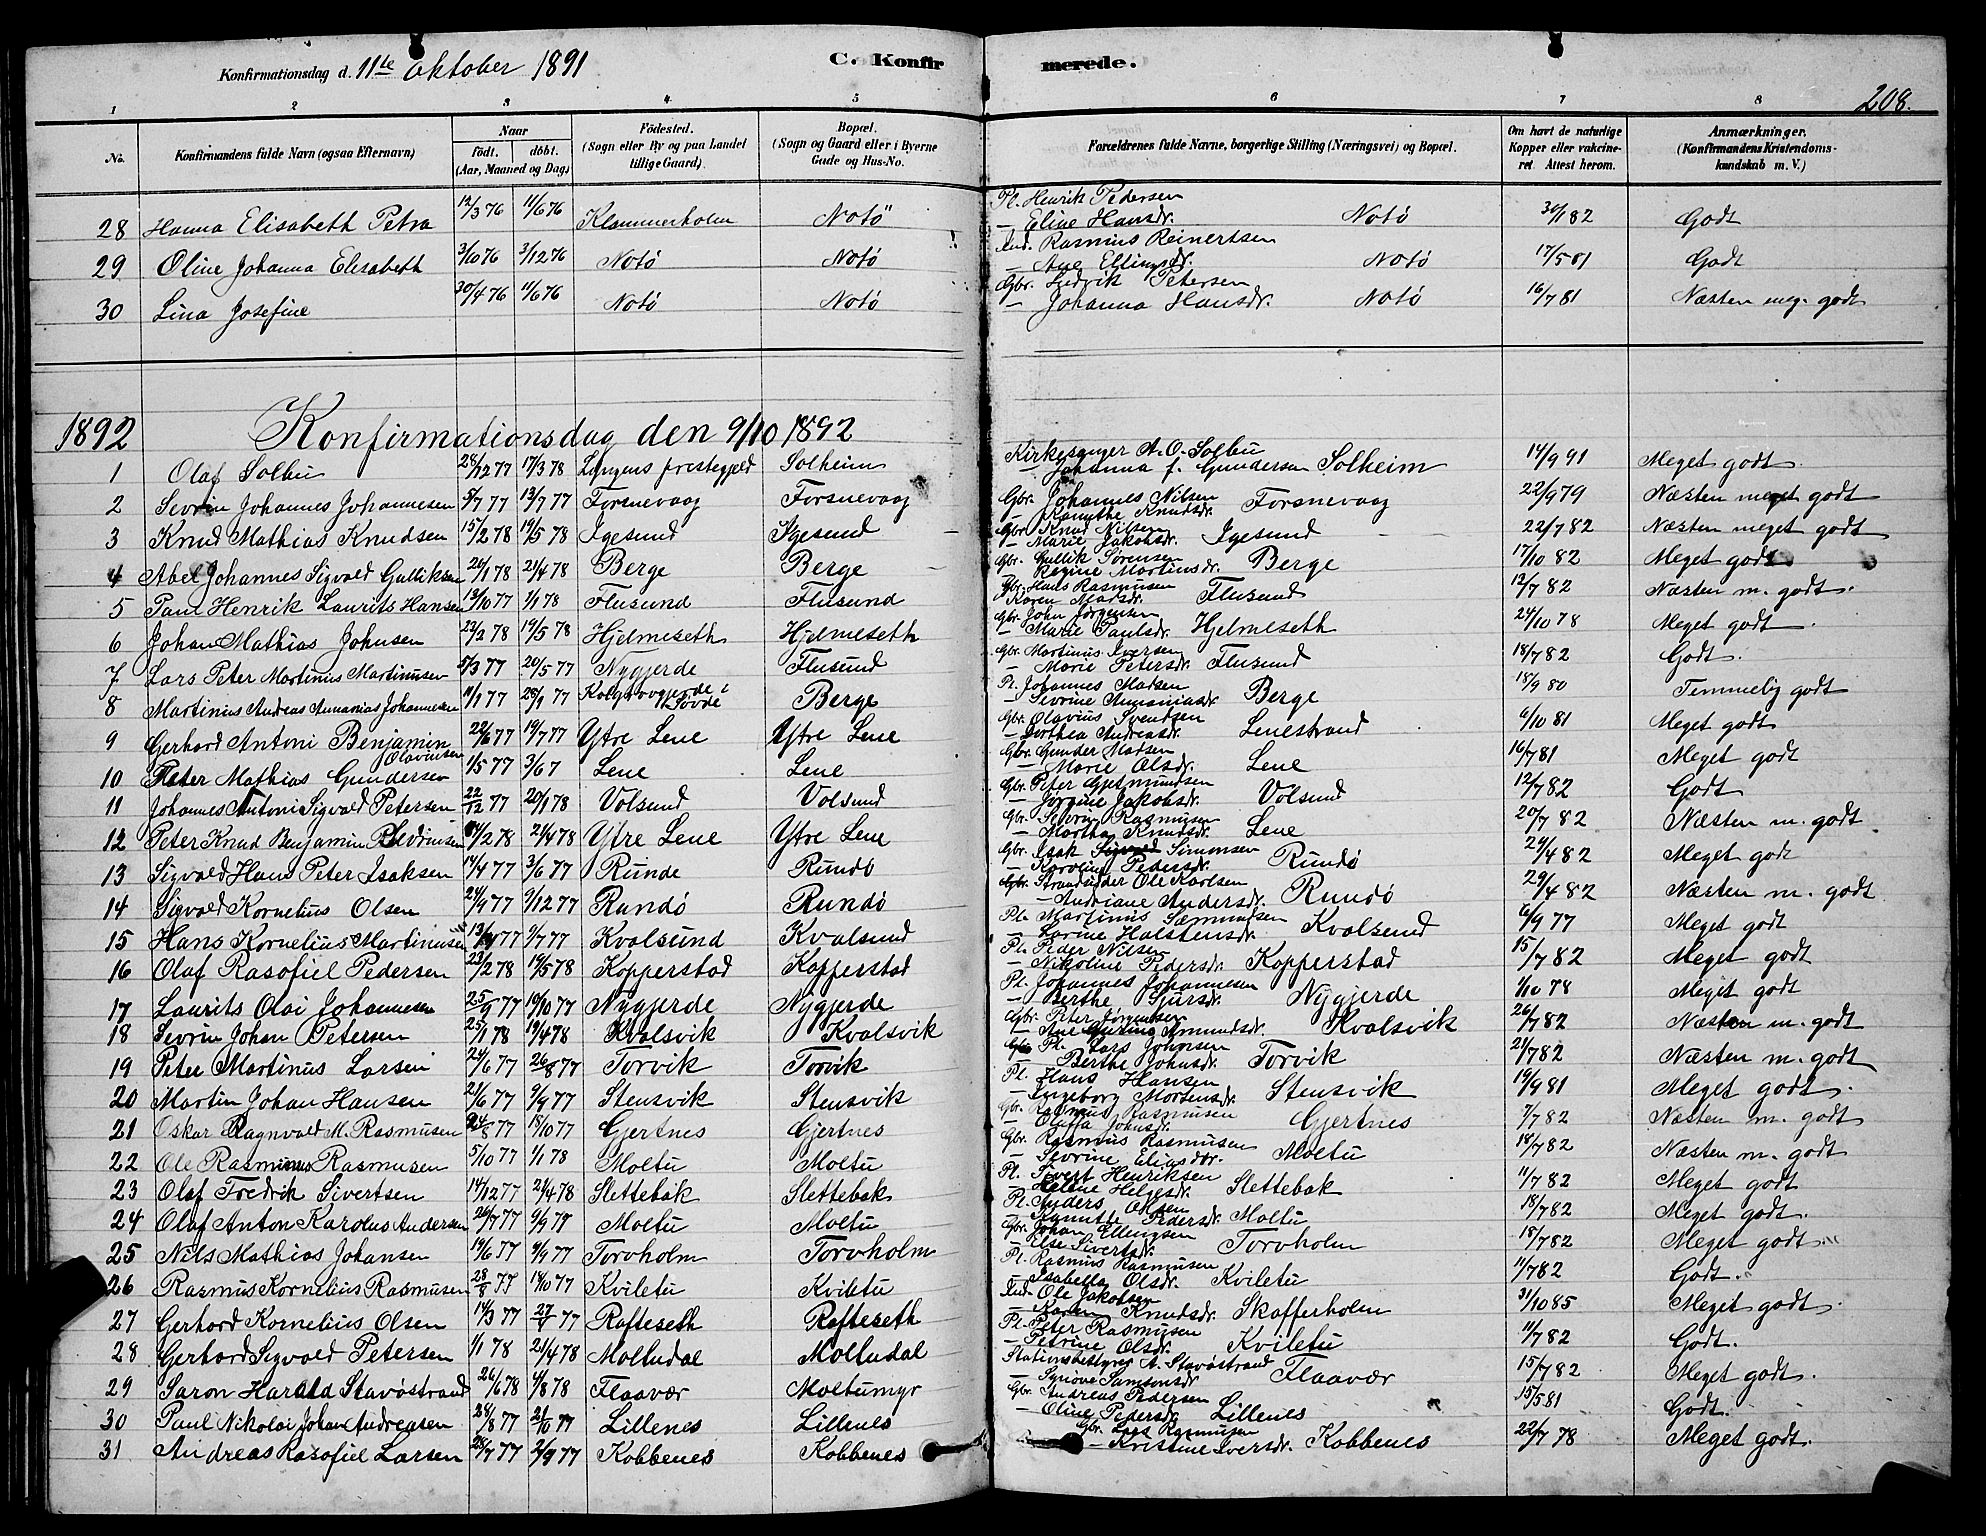 Konfirmationsdag d. 11te Oktober 1891 C. Konfirmerede. 208.
1 2 3 4 5 6 7 8
No. Konfirmandens fulde Navn (ogsaa Efternavn) Naar født. døbt. (Aar, Maaned og Dag) Fødested. (Sogn eller By og paa Landet tillige Gaard). Bopæl. (Sogn og Gaard eller i Byerne Gade og Hus-No. Forældrenes fulde Navne, borgerlige Stilling (Næringsvei) og Bopæl. Om havt de naturlige Kopper eller vakcineret. Attest herom. Anmærkninger. (Konfirmandens Kristendomskundskab m. V.)
28 Hanna Elisabeth Petra 12/3 76 11/6 76 Klammerholm Notø Pl. Henrik Pedersen - Eline Hansdr. Notø 30/1 82 Godt
29 Oline Johanna Elisabeth 3/10 76 3/12 76 Notø Notø Ind. Rasmus Reinertsen - Ane Ellingsdr. Notø 17/5 81 Godt
30 Lina Josefine 30/4 76 11/6 76 Notø Notø Gbr. Ludvik Petersen - Johanna Hansdr. Notø 16/7 81 Næsten meg. godt
1892 Konfirmationsdag den 9/10 1892
1 Olaf Solbu 28/12 77 17/3 78 Lyngens prestegjeld Solheim Kirkesanger A. O. Solbu - Johanna f. Gundersen Solheim 14/9 91 Meget godt.
2 Sevrin Johannes Johannesen 5/7 77 13/7 77 Forsnevaag Forsnevaag Gbr. Johannes Nilsen - Ranythe Knudsdr. Forsnevaag 22/9 79 Næsten meget godt
3 Knud Mathias Knudsen 15/2 78 19/5 78 Igesund Igesund Gbr. Knud Nilsen - Marie Jakobsdr. Igesund 22/7 82 Næsten meget godt
4 Abel Johannes Sigvald Gulliksen 26/1 78 21/4 78 Berge Berge Gbr. Gullik Sørensen - Regine Martinsdr. Berge 17/10 82 Meget godt
5 Paul Henrik Laurits Hansen 13/10 77 1/1 78 Flusund Flusund Gbr. Hans Rasmusen - Karen Madsdr. Flusund 12/7 82 Næsten m. godt.
6 Johan Mathias Johnsen 22/2 78 19/5 78 Hjelmeseth Hjelmeseth Gbr. John Jørgensen - Marie Paulsdr. Hjelmeseth 24/10 78 Meget godt.
7 Lars Peter Martinus Martinusen 5/3 77 20/5 77 Nygjerde Flusund Gbr. Martinus Iversen - Marie Petersdr. Flusund 18/7 82 Godt.
8 Martinus Andreas Annanias Johannesen 11/1 77 28/1 77 i Søvde Berge Pl. Johannes Madsen - Sevrine Annaniasdr. Berge 18/9 80 Temmelig godt
9 Gerhard Antoni Benjamin Olavusen 22/6 77 19/7 77 Ytre Lene Ytre Lene Gbr. Olavius Sventsen - Dorthea Andreasdr. Lenestrand 6/10 81 Meget godt
10 Peter Mathias Gundersen 1/5 77 3/6 7 Lene Lene Gbr. Gunder Madsen - Marie Olsdr. Lene 16/7 81 Meget godt
11 Johannes Antoni Sigvald Petersen 22/12 77 20/1 78 Volsund Volsund Gbr. Peter Gjetmundsen - Jørgine Jakobsdr. Volsund 12/7 82 Godt
12 Peter Knud Benjamin Sevrinsen 14/2 78 21/4 78 Ytre Lene Ytre Lene Gbr. Sevrin Rasmusen - Martha Knudsdr. Lene 20/7 82 Næsten m. godt
13 Sigvald Hans Peter Isaksen 14/4 77 3/6 77 Runde Rundø Gbr. Isak Simonsen - Karoline Pedersdr. Rundø 24/4 82 Meget godt
14 Sigvald Kornelius Olsen 24/9 77 9/12 77 Rundø Rundø Gbr. Strandsidder Ole Karlsen - Andriane Andersdr. Rundø 29/4 82 Næsten m. godt
15 Hans Kornelius Martinusen 13/4 77 1/7 77 Kvalsund Kvalsund Pl. Martinus Sæmundsen - Larine Halstensdr. Kvalsund 6/9 77 Meget godt
16 Olaf Rasofiel Pedersen 23/2 78 19/5 78 Kopperstad Kopperstad Pl. Peder Nilsen - Nikoline Pedersdr. Kopperstad 15/7 82 Meget godt
17 Laurits Olai Johannesen 25/9 77 19/10 77 Nygjerde Nygjerde Pl. Johannes Johannesen - Berthe Sjursdr. Nygjerde 1/10 78 Meget godt
18 Sevrin Johan Petersen 25/1 78 19/4 78 Kvalsvik Kvalsvik Gbr. Peter Jørgensen - Ane Amundsdr. Kvalsvik 26/7 82 Næsten m. godt
19 Peter Martinus Larsen 24/6 77 26/8 77 Torvik Torvik Pl. Lars Johnsen - Berthe Johnsdr. Torvik 21/7 82 Næsten m. godt
20 Martin Johan Hansen 21/6 77 9/9 77 Stensvik Stensvik Pl. Hans Hansen - Ingeborg Mortensdr. Stensvik 19/9 81 Meget godt.
21 Oskar Ragnvald M. Rasmusen 24/8 77 18/10 77 Gjertnes Gjertnes Gbr. Rasmus Rasmusen - Olaffa Johnsdr. Gjertnes 7/7 82 Næsten m. godt
22 Ole Rasmus Rasmusen 5/10 77 1/1 78 Moltu Moltu Gbr. Rasmus Rasmusen - Sevrine Eliasdr. Moltu 18/7 82 Næsten m. godt.
23 Olaf Fredrik Sivertsen 14/12 77 21/4 78 Slettebak Slettebak Pl. Sivert Henriksen - Helene Helgesdr. Slettebak 11/7 82 Meget godt
24 Olaf Anton Karolus Andersen 26/7 77 9/9 77 Moltu Moltu Pl. Anders Olsen - Ranuthe Pedersdr. Moltu 18/7 82 Meget godt.
25 Nils Mathias Johansen 19/6 77 9/9 77 Torvholm Torvholm Gbr. Johan Ellingsen - Else Sivertsdr. Torvholm 18/7 82 Meget godt
26 Rasmus Kornelius Rasmusen 28/8 77 14/10 77 Kviletu Kviletu Pl. Rasmus Rasmusen - Isabella Olsdr. Kviletu 11/7 82 Godt.
27 Gerhard Kornelius Olsen 14/3 77 27/5 77 Rafteseth Rafteseth Ind. Ole Jakobsen - Karen Knudsdr. Skafferholm 31/10 85 Meget godt.
28 Gerhard Sigvald Petersen 1/1 78 21/4 78 Moltudal Moltudal Pl. Peter Rasmusen - Petrine Olsdr. Kviletu 11/7 82 Godt.
29 Saron Harald Stavøstrand 26/6 78 4/8 78 Flaavær Moltumyr Stationsbestyrer A. Stavøstrand - Synøve Samsonsdr. Flaavær 15/7 82 Meget godt.
30 Paul Nikolai Johan Andreasen 28/8 77 21/10 77 Lillenes Lillenes Gbr. Andreas Pedersen - Oline Pedersdr. Lillenes 15/5 81 Godt.
31 Andreas Rasofiel Larsen 28/7 77 2/9 77 Kobbenes Kobbenes Gbr. Lars Rasmusen - Kristine Iversdr. Kobbenes 22/7 78 Meget godt.